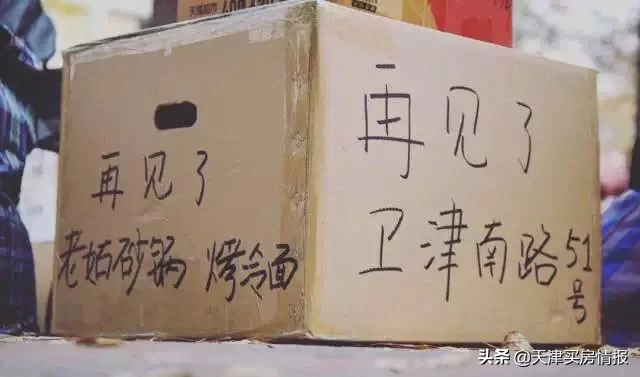 再见了
老姑砂锅 烤冷面
再见了
卫津南路51号
头条 @天津买房情报